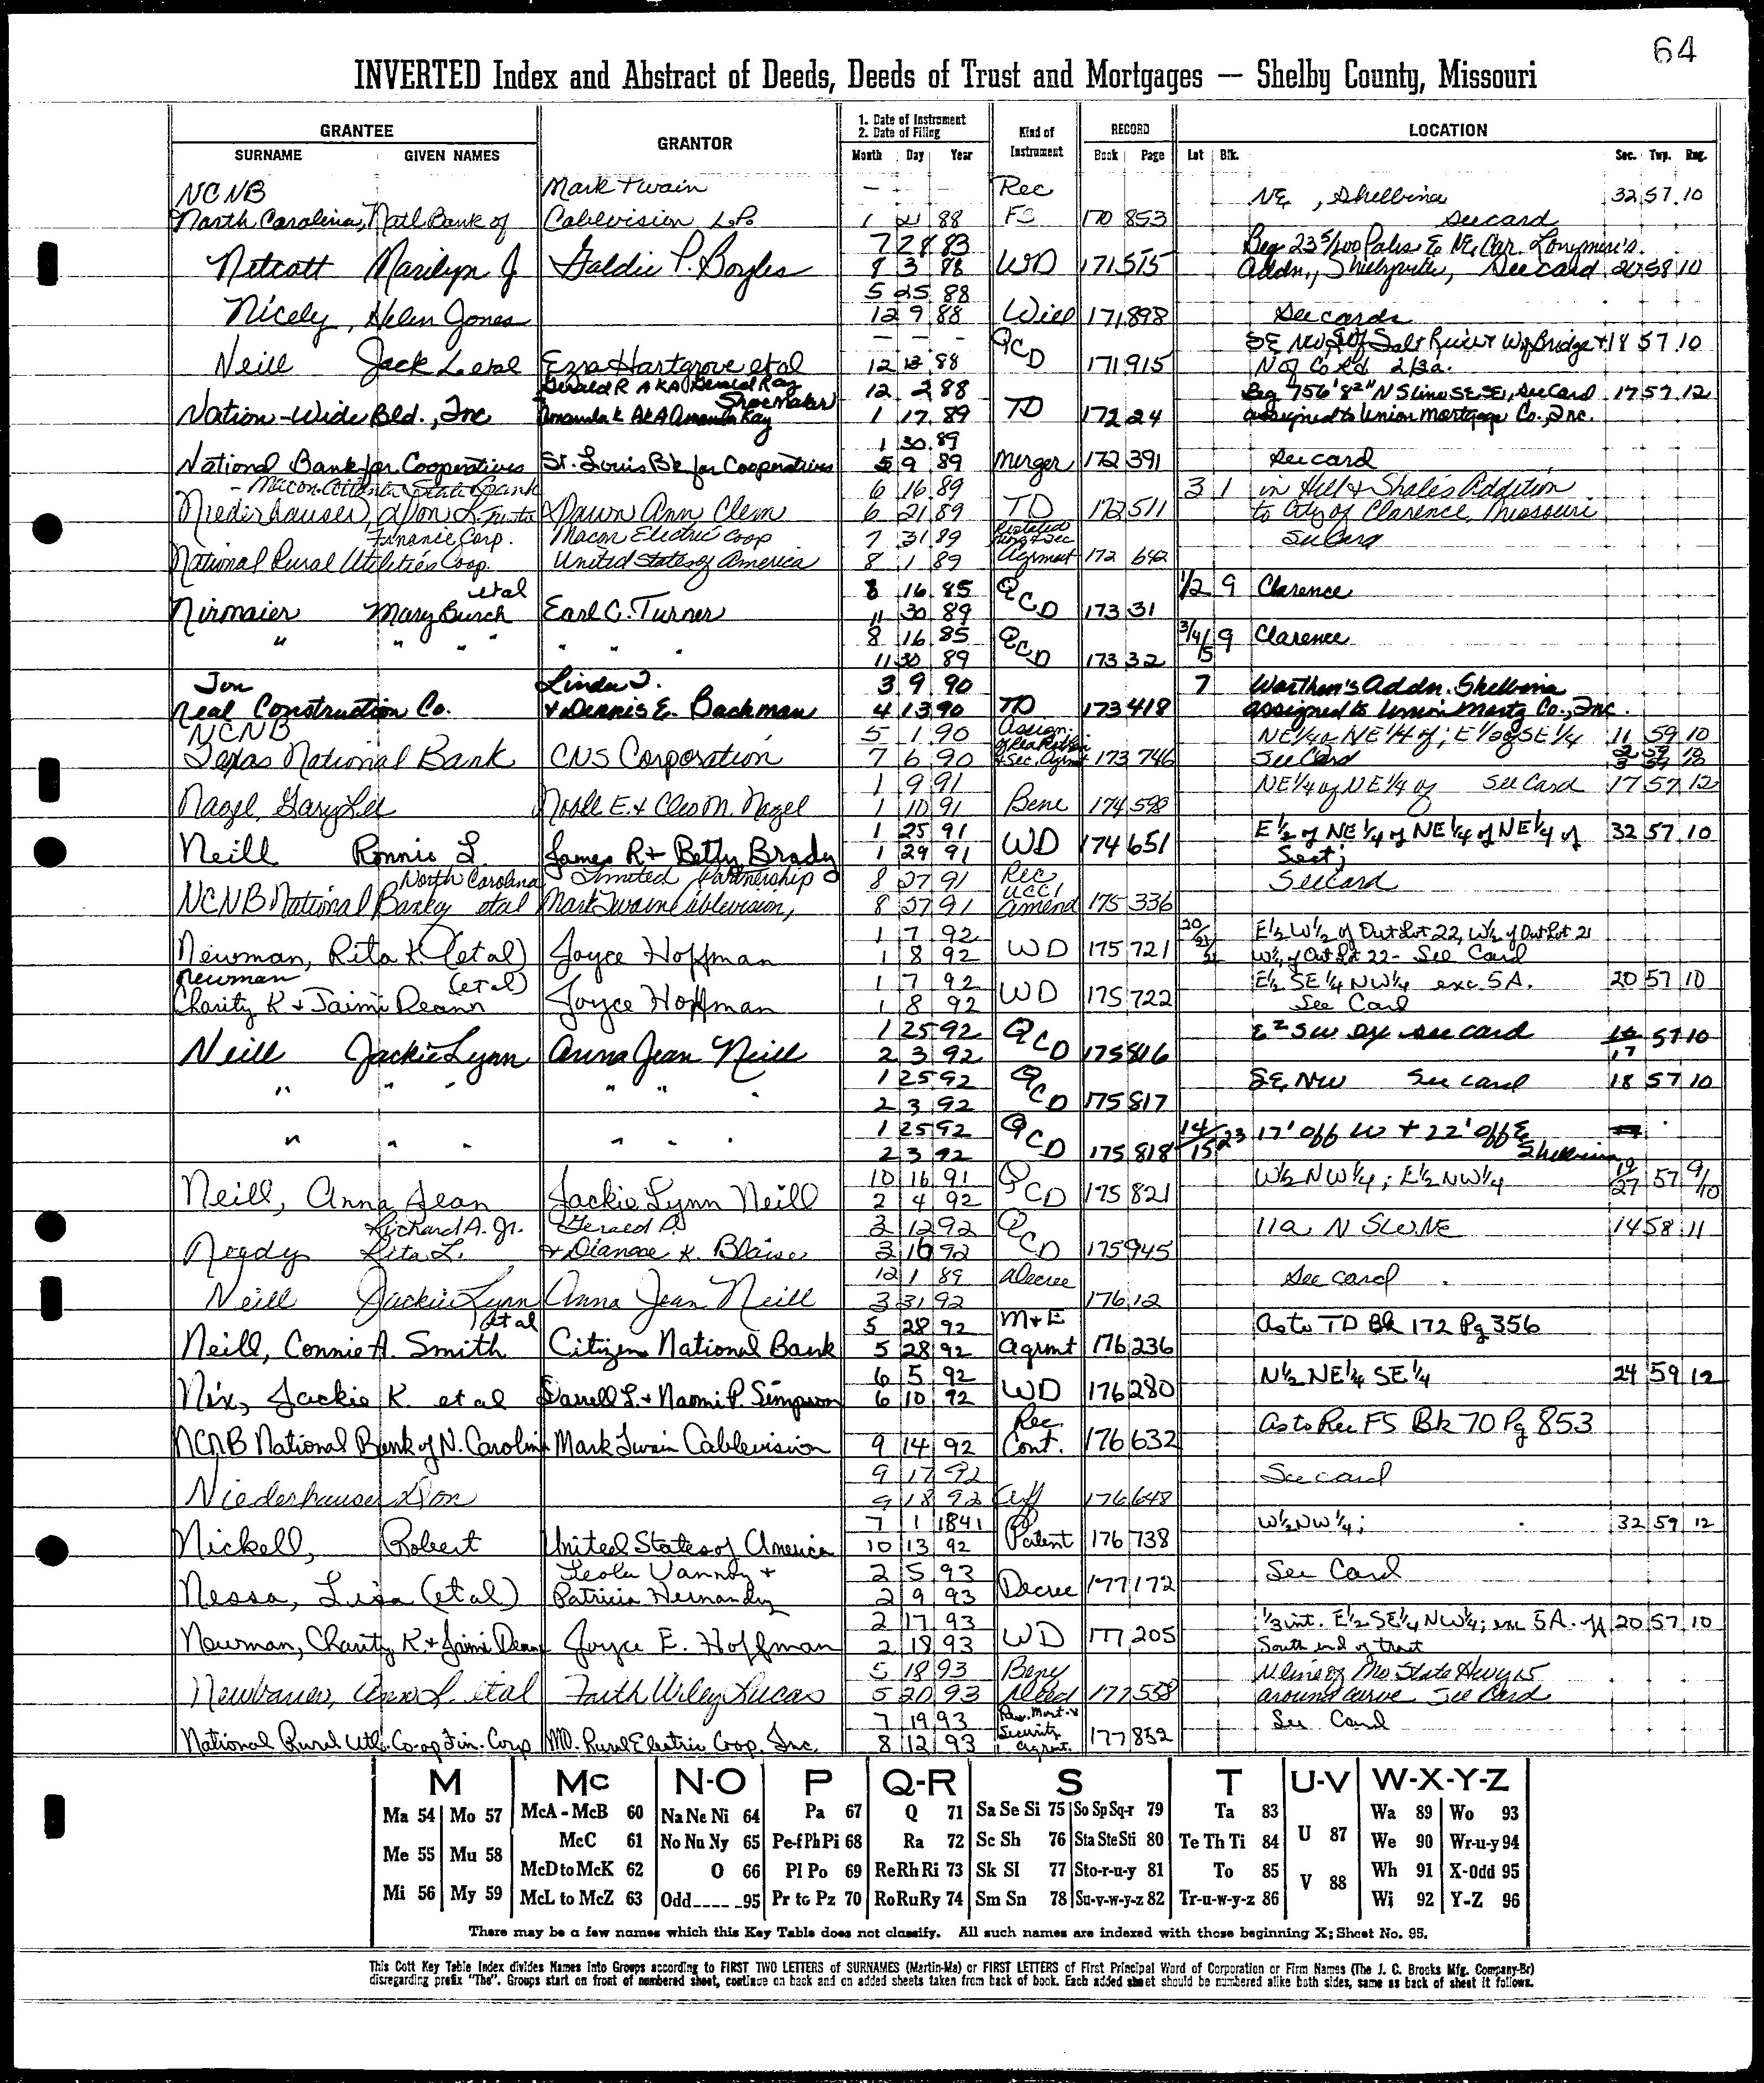 64
INVERTED Index and Abstract of Deeds, Deeds of Trust and Mortgages — Shelby County, Missouri
GRANTEE
SURNAME GIVEN NAMES
GRANTOR
1. Date of Instrument
2. Date of Filing
Month Day Year
Kind of Instrument
RECORD
Book Page
LOCATION
Lot Blk. Sec. Twp. Rng.
NCNB Mark Twain - - - Rec NE , Shelbina 32 57 10
North Carolina, Natl Bank of Cablevision L.P. 1 21 88 FS 170 853 See card
7 28 83 Beg 23 5/100 Poles E NE Cor. Longmire's
Netcott Marilyn J Goldie P. Boyles 8 3 88 WD 171 515 Addn., Shelbyville, See card 20 58 10
5 25 88
Nicely, Helen Jones 12 9 88 Will 171 898 See cards
- - - QCD SE NW, S of Salt River & W of Bridge + 18 57 10
Neill Jack L etal Ezra Hartgrove etal 12 12 88 171 915 N of Co Rd 2 1/2 a.
Gerald R AKA Gerald Ray Shoemaker 12 2 88 Beg 756' 82" N S line SE SE, See Card 17 57 12
Nation-Wide Bld., Inc Amanda K AKA Amanda Kay 1 17 89 TD 172 24 assigned to Union Mortgage Co., Inc.
1 30 89
National Bank for Cooperatives St. Louis Bk for Cooperatives 5 9 89 Merger 172 391 See card
- Macon Atlanta State Bank 6 16 89 3 1 in Hill & Shale's Addition
Niederhauser, Don L. Trste Dawn Ann Clem 6 21 89 TD 172 511 to City of Clarence, Missouri
Finance Corp. Macon Electric Coop 7 31 89 Restated See Card
National Rural Utilities Coop. United States of America 8 1 89 Agrmnt 172 642
etal 8 16 85 QCD 1/2 9 Clarence
Nirmaier Mary Burch Earl C. Turner 11 30 89 173 31
" " " " " " 8 16 85 QCD 3/4/15 9 Clarence
11 30 89 173 32
Jon Linda J. 3 9 90 7 Worthen's Addn. Shelbina
Neal Construction Co. & Dennis E. Backman 4 13 90 TD 173 418 assigned to Union Mortg Co., Inc.
NCNB 5 1 90 Assign. NE 1/4 of NE 1/4 of; E 1/2 of SE 1/4 11 59 10
Texas National Bank CNS Corporation 7 6 90 & Sec. Agrmt 173 746 See Card
1 9 91 NE 1/4 of NE 1/4 of See Card 17 57 12
Nagel, Gary Lee Noble E. & Cleo M. Nagel 1 10 91 Bene 174 590
1 25 91 E 1/2 of NE 1/4 of NE 1/4 of NE 1/4 of 32 57 10
Neill Ronnie L. James R & Betty Brady 1 29 91 WD 174 651 Sect;
North Carolina Limited Partnership 8 27 91 Rec UCC1 See Card
NCNB National Bank of etal Mark Twain Cablevision, 8 27 91 amend 175 336
1 7 92 20/21/22 E 1/2 W 1/2 of Out Lot 22, W 1/2 of Out Lot 21
Newman, Rita K. (et al) Joyce Hoffman 1 8 92 WD 175 721 W 1/2 of Out Lot 22 - See Card
Newman (et al) 1 7 92 E 1/2 SE 1/4 NW 1/4 exc. 5A. 20 57 10
Charity K & Jaimi Deann Joyce Hoffman 1 8 92 WD 175 722 See Card
1 25 92 QCD E 2 SW ex see card 17 57 10
Neill Jackie Lynn Anna Jean Neill 2 3 92 175 816
" " " " " " 1 25 92 QCD SE NW See card 18 57 10
2 3 92 175 817
" " " " " " 1 25 92 QCD 14/15 23 17' off W + 22' off E
2 3 92 175 818 Shelbina
10 16 91 QCD W 1/2 NW 1/4; E 1/2 NW 1/4 19/27 57 9/10
Neill, Anna Jean Jackie Lynn Neill 2 4 92 175 821
Richard A. Jr. Gerald D. 3 12 92 QCD 11a N SW NE 14 58 11
Negdy Rita L. & Dianae K. Blaise 3 16 92 175 945
12 1 89 Decree See card
Neill Jackie Lynn Anna Jean Neill 3 31 92 176 12
et al 5 28 92 M & E As to TD Bk 172 Pg 356
Neill, Connie A. Smith Citizens National Bank 5 28 92 Agrmt 176 236
6 5 92 N 1/2 NE 1/4 SE 1/4 24 59 12
Nix, Jackie K. et al Darrell L. & Naomi P. Simpson 6 10 92 WD 176 280
Rec. As to Rec FS Bk 70 Pg 853
NCNB National Bank of N. Carolina Mark Twain Cablevision 9 14 92 Cont. 176 632
9 17 92 See card
Niederhauser Don 9 18 92 Aff 176 648
7 1 1841 W 1/2 NW 1/4; 32 59 12
Nickell, Robert United States of America 10 13 92 Patent 176 738
Leola Vannoy & 2 5 93 See Card
Nessa, Lisa (et al) Patricia Hernandy 2 9 93 Decree 177 172
2 17 93 1/3 int. E 1/2 SE 1/4 NW 1/4; exc 5A. off 20 57 10
Newman, Charity K. & Jaimi Deann Joyce E. Hoffman 2 18 93 WD 177 205 South end of tract
5 18 93 Beny N line of Mo State Hwy 15
Newbauer, Ann L. etal Faith Urley Lucas 5 20 93 Deed 177 558 around curve See Card
7 19 93 Rev. Mort. & See Card
National Rural Utl. Co-op Fin. Corp MO. Rural Electric Coop. Inc. 8 12 93 Security Agrmt. 177 852
M Mc N-O P Q-R S T U-V W-X-Y-Z
Ma 54 Mo 57 McA - McB 60 Na Ne Ni 64 Pa 67 Q 71 Sa Se Si 75 So Sp Sq-r 79 Ta 83 U 87 Wa 89 Wo 93
Me 55 Mu 58 McC 61 No Nu Ny 65 Pe-f Ph Pi 68 Ra 72 Sc Sh 76 Sta Ste Sti 80 Te Th Ti 84 We 90 Wr-u-y 94
McD to McK 62 O 66 Pl Po 69 Re Rh Ri 73 Sk Sl 77 Sto-r-u-y 81 To 85 V 88 Wh 91 X-Odd 95
Mi 56 My 59 McL to McZ 63 Odd 95 Pr to Pz 70 Ro Ru Ry 74 Sm Sn 78 Su-v-w-y-z 82 Tr-u-w-y-z 86 Wi 92 Y-Z 96
There may be a few names which this Key Table does not classify. All such names are indexed with those beginning X; Sheet No. 95.
This Cott Key Table Index divides Names into Groups according to FIRST TWO LETTERS of SURNAMES (Martin-Ma) or FIRST LETTERS of First Principal Word of Corporation or Firm Names (The J. C. Brooks Mfg. Company-Br)
disregarding prefix "The". Groups start on front of numbered sheet, continue on back and on added sheets taken from back of book. Each added sheet should be numbered alike both sides, same as back of sheet it follows.